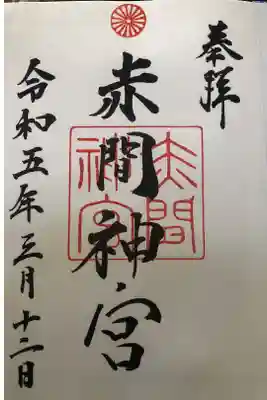 奉拝
赤間神宮
赤間神宮
令和五年三月十二日